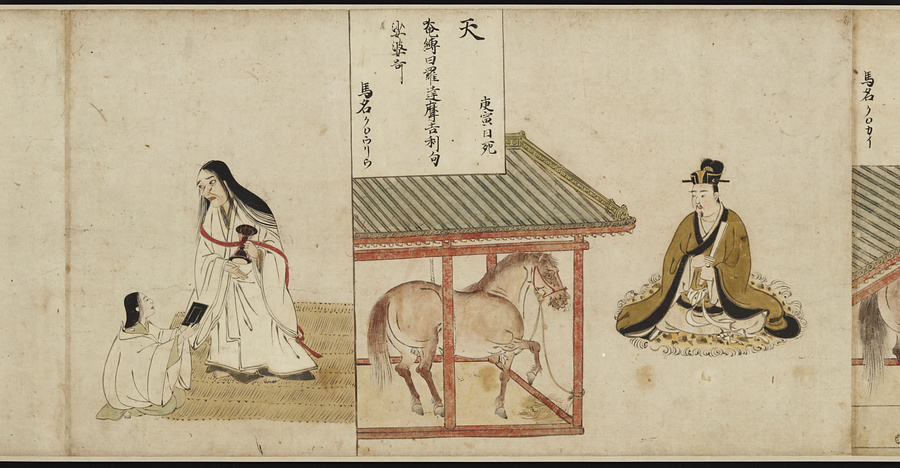 天
庚寅日死
唵縛日羅達摩吉利句
娑婆訶
馬名クロウリウ
馬名クロカイ